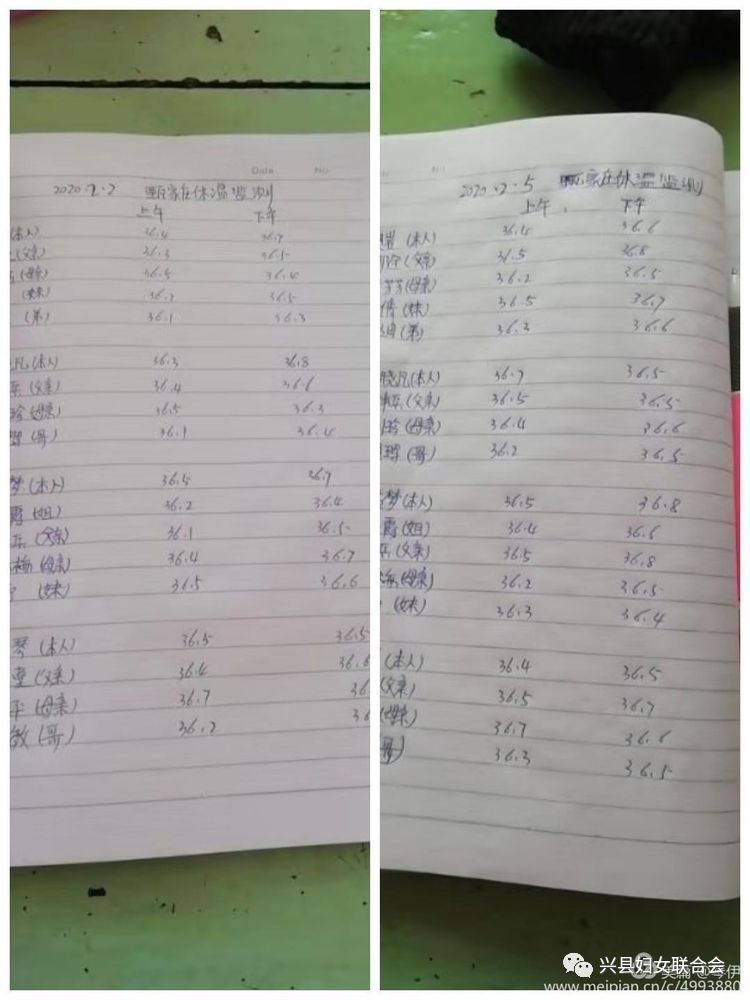 Date No
2020.2.2 甄家庄体温监测
上午 下午
(本人) 36.4 36.7
(父亲) 36.3 36.5
(母亲) 36.5 36.4
(妹) 36.2 36.5
(弟) 36.1 36.3
凡(本人) 36.3 36.8
东(父亲) 36.4 36.6
珍(母亲) 36.5 36.3
(哥) 36.1 36.4
梦(本人) 36.5 36.7
霞(姐) 36.2 36.4
东(父亲) 36.1 36.5
梅(母亲) 36.4 36.7
(妹) 36.5 36.6
琴(本人) 36.5 36.5
堂(父亲) 36.4 36.6
平(母亲) 36.7 36
敏(哥) 36.2 36
No
2020.2.5 甄家庄体温监测
上午 下午
(本人) 36.4 36.6
(父亲) 36.5 36.8
芳(母亲) 36.2 36.5
倩(妹) 36.5 36.7
(弟) 36.3 36.6
晓凡(本人) 36.7 36.5
东(父亲) 36.5 36.5
珍(母亲) 36.4 36.6
(哥) 36.2 36.5
梦(本人) 36.5 36.8
霞(姐) 36.4 36.6
东(父亲) 36.5 36.8
梅(母亲) 36.2 36.5
(妹) 36.3 36.4
(本人) 36.4 36.5
(父亲) 36.5 36.7
(母亲) 36.7 36.6
(哥) 36.3 36.5
兴县妇女联合会
美篇@琴伊
www.meipian.cn/c/4993880